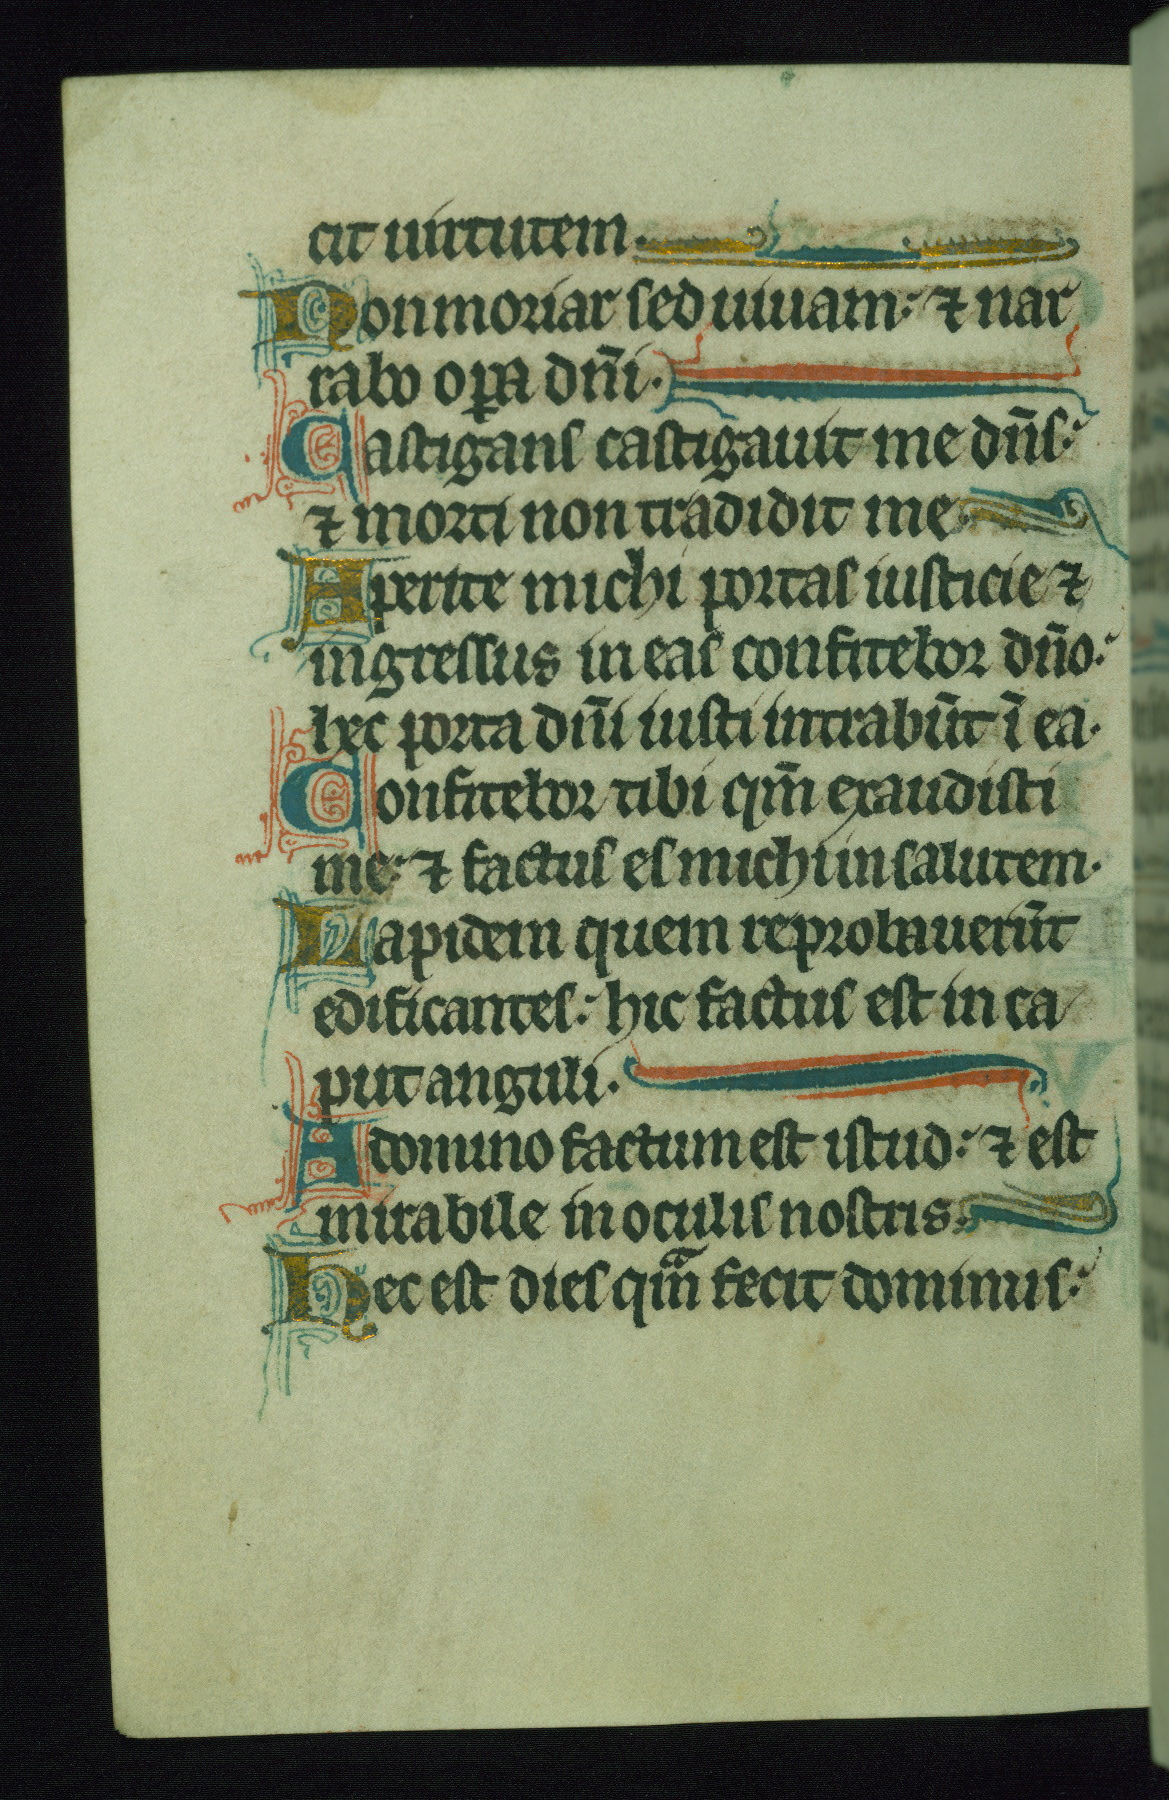 cit uirtutem.
Non moriar sed uiuam: ⁊ nar
rabo oꝑa dn̄i.
Castigans castigauit me dn̄s:
⁊ morti non tradidit me.
Aperite michi portas iusticie ⁊
ingressus in eas confitebor dn̄o:
hec porta dn̄i iusti intrabūt ī ea.
Confitebor tibi qm̄ exaudisti
me: ⁊ factus es michi in salutem.
Lapidem quem reprobauerūt
edificantes: hic factus est in ca
put anguli.
A domino factum est istud: ⁊ est
mirabile in oculis nostris.
Hec est dies qᵃm fecit dominus: